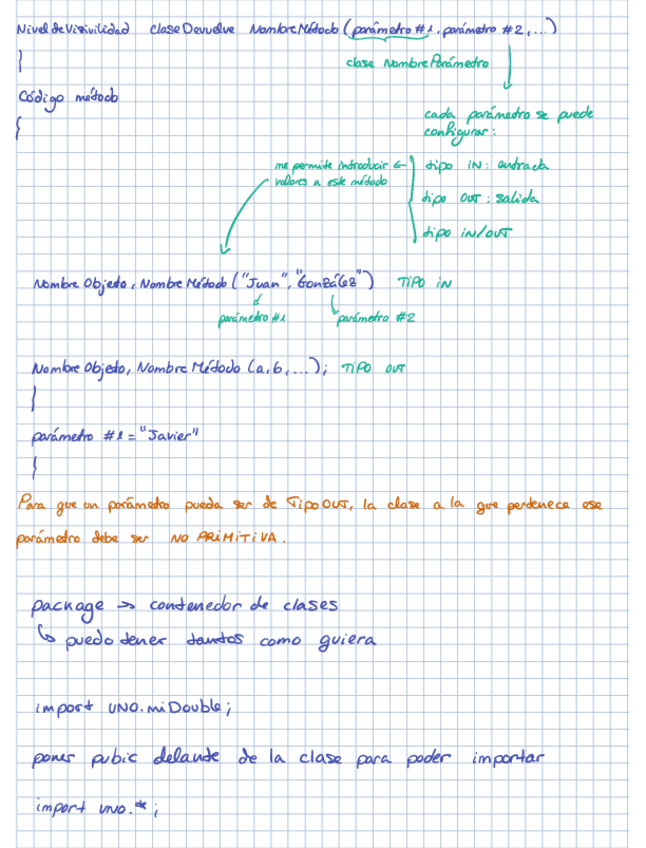 Nivel de Visivilidad claseDevuelve NombreMétodo (parámetro #1, parámetro #2, ...)
}
clase NombreParámedro
Código método
{
cada parámedro se puede
configurar:
me permite introducir ← } tipo IN: entrada
valores a este método
tipo OUT: salida
tipo in/OUT
Nombre Objeto, Nombre Método ("Juan", "González") TIPO IN
parámetro #1 parámetro #2
Nombre Objeto, Nombre Método (a,b, ...); TIPO OUT
}
parámetro #1 = "Javier"
{
Para que un parámetro pueda ser de Tipo OUT, la clase a la que pertenece ese
parámetro debe ser NO PRIMITIVA.
package → contenedor de clases
↳ puedo tener tantos como quiera
import UNO.miDouble;
poner pubic delante de la clase para poder importar
import uno.*;